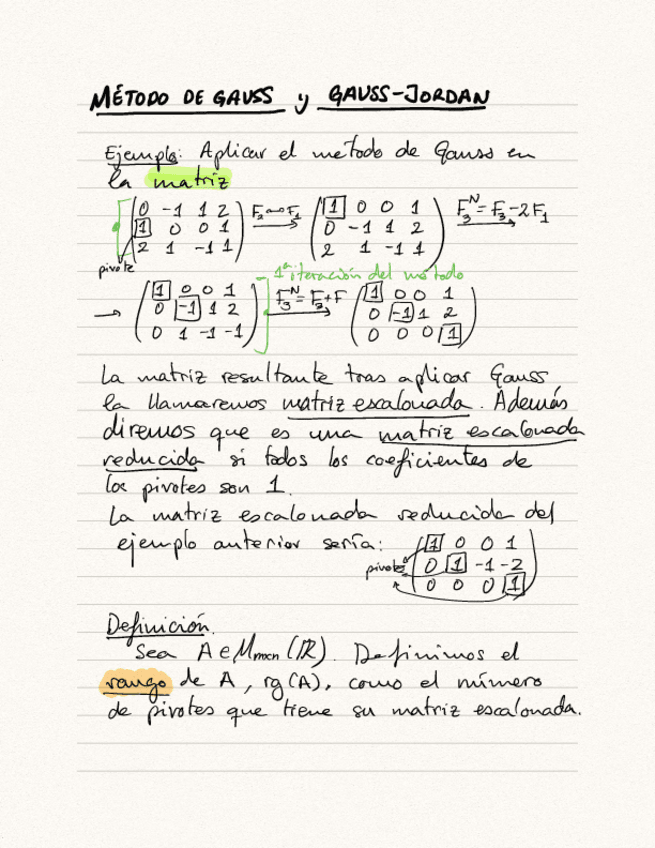 MÉTODO DE GAUSS y GAUSS-JORDAN
Ejemplo: Aplicar el método de Gauss en
la matriz
(0 -1 1 2 F₂↔F₁ (1 0 0 1 F₃ᴺ=F₃-2F₁
1 0 0 1 0 -1 1 2
2 1 -1 1) 2 1 -1 1)
pivote
1ª iteración del método
→ (1 0 0 1 F₃ᴺ=F₃+F (1 0 0 1
0 -1 1 2 0 -1 1 2
0 1 -1 -1) 0 0 0 1)
La matriz resultante tras aplicar Gauss
la llamaremos matriz escalonada. Además
diremos que es una matriz escalonada
reducida si todos los coeficientes de
los pivotes son 1.
La matriz escalonada reducida del
ejemplo anterior sería: (1 0 0 1
pivotes 0 1 -1 -2
0 0 0 1)
Definición.
Sea A ∈ Mmxn (ℝ). Definimos el
rango de A, rg(A), como el número
de pivotes que tiene su matriz escalonada.